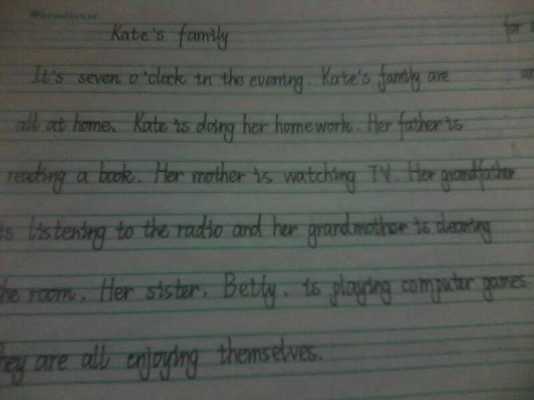 Kate's family
It's seven o'clock in the evening. Kate's family are
all at home. Kate is doing her homework. Her father is
reading a book. Her mother is watching TV. Her grandfather
is listening to the radio and her grandmother is cleaning
the room. Her sister, Betty, is playing computer games
They are all enjoying themselves.